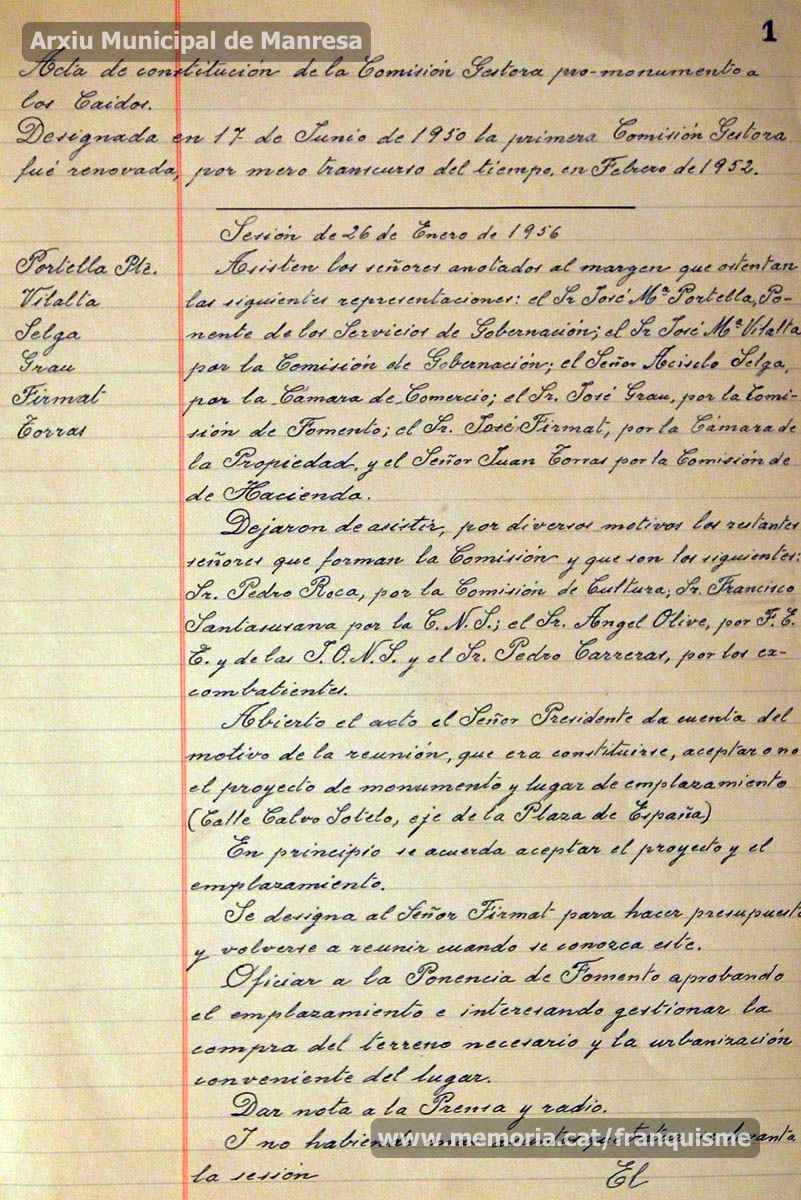 Arxiu Municipal de Manresa
1
Acta de constitución de la Comisión Gestora pro-monumento a
los Caidos.
Designada en 17 de Junio de 1950 la primera Comisión Gestora
fué renovada, por mero transcurso del tiempo, en Febrero de 1952.
Sesión de 26 de Enero de 1956
Portella Pte.
Vilalta
Selga
Grau
Firmat
Torras
Asisten los señores anotados al margen que ostentan
las siguientes representaciones: el Sr José Mª Portella, Po-
nente de los Servicios de Gobernación; el Sr José Mª Vilalta
por la Comisión de Gobernación; el Señor Acisclo Selga,
por la Cámara de Comercio; el Sr. José Grau, por la Comi-
sión de Fomento; el Sr. José Firmat, por la Cámara de
la Propiedad, y el Señor Juan Torras por la Comisión de
de Hacienda.
Dejaron de asistir, por diversos motivos los restantes
señores que forman la Comisión y que son los siguientes:
Sr. Pedro Roca, por la Comisión de Cultura; Sr. Francisco
Santasusana por la C.N.S.; el Sr. Angel Olive, por F.E.
T. y de las J.O.N.S. y el Sr. Pedro Carreras, por los ex-
combatientes.
Abierto el acto el Señor Presidente da cuenta del
motivo de la reunión, que era constituirse, aceptar o no
el proyecto de monumento y lugar de emplazamiento
(Calle Calvo Sotelo, eje de la Plaza de España)
En principio se acuerda aceptar el proyecto y el
emplazamiento.
Se designa al Señor Firmat para hacer presupuesto
y volverse a reunir cuando se conozca este.
Oficiar a la Ponencia de Fomento aprobando
el emplazamiento e interesando gestionar la
compra del terreno necesario y la urbanización
conveniente del lugar.
Dar nota a la Prensa y radio.
I no habiendo más
la sesión El
www.memoria.cat/franquisme